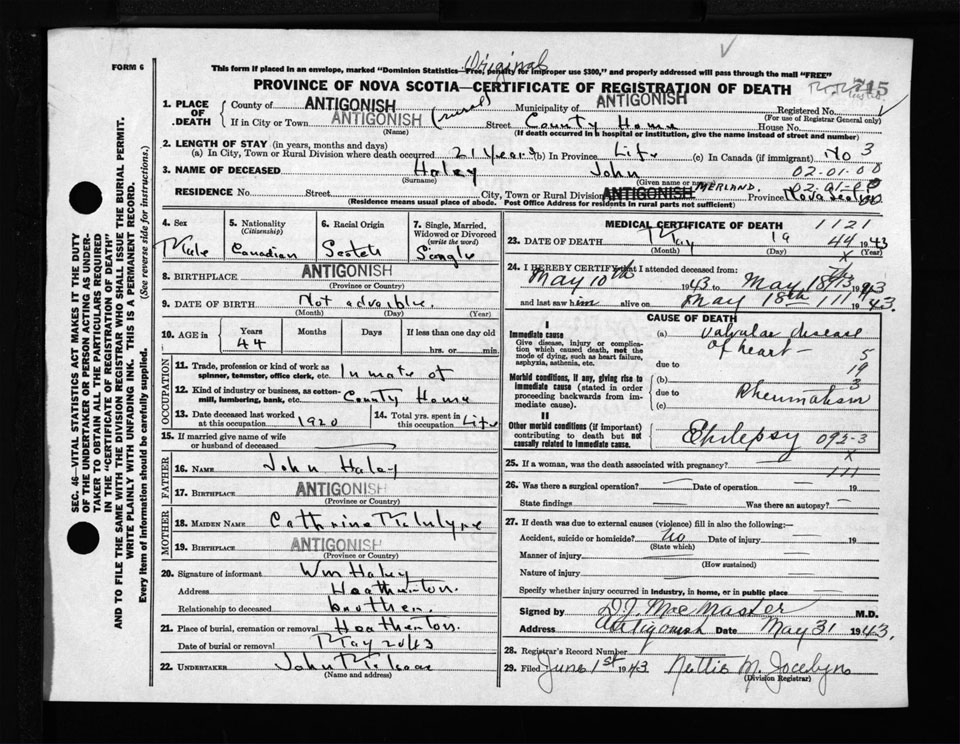 Original
FORM 6
This form if placed in an envelope, marked "Dominion Statistics—Free, penalty for improper use $300," and properly addressed will pass through the mail "FREE"
PROVINCE OF NOVA SCOTIA—CERTIFICATE OF REGISTRATION OF DEATH
715
1. PLACE OF DEATH
County of ANTIGONISH (rural) Municipality of ANTIGONISH Registered No.
(For use of Registrar General only)
If in City or Town ANTIGONISH Street County Home House No.
(Name) (If death occurred in a hospital or institution, give the name instead of street and number)
2. LENGTH OF STAY (in years, months and days)
(a) In City, Town or Rural Division where death occurred 21 Years (b) In Province Life (c) In Canada (if immigrant) No 3
3. NAME OF DECEASED Haley John 02.01.00
(Surname) (Given name or names)
RESIDENCE No. Street City, Town or Rural Division ANTIGONISH Province Nova Scotia
(Residence means usual place of abode. Post Office Address for residents in rural parts not sufficient)
SEC. 46—VITAL STATISTICS ACT MAKES IT THE DUTY
OF THE UNDERTAKER OR PERSON ACTING AS UNDER-
TAKER TO OBTAIN ALL THE PARTICULARS REQUIRED
IN THE "CERTIFICATE OF REGISTRATION OF DEATH"
AND TO FILE THE SAME WITH THE DIVISION REGISTRAR WHO SHALL ISSUE THE BURIAL PERMIT.
WRITE PLAINLY WITH UNFADING INK. THIS IS A PERMANENT RECORD.
Every item of information should be carefully supplied. (See reverse side for instructions.)
4. Sex 5. Nationality (Citizenship) 6. Racial Origin 7. Single, Married, Widowed or Divorced (write the word)
Male Canadian Scotch Single
8. BIRTHPLACE ANTIGONISH
(Province or Country)
9. DATE OF BIRTH Not advisible.
(Month) (Day) (Year)
10. AGE in Years Months Days If less than one day old
44 hrs. or min.
OCCUPATION
11. Trade, profession or kind of work as spinner, teamster, office clerk, etc. Inmate of
12. Kind of industry or business, as cotton-mill, lumbering, bank, etc. County Home
13. Date deceased last worked at this occupation 1920 14. Total yrs. spent in this occupation Life
15. If married give name of wife or husband of deceased
FATHER
16. NAME John Haley
17. BIRTHPLACE ANTIGONISH
(Province or Country)
MOTHER
18. MAIDEN NAME Cathrine McIntyre
19. BIRTHPLACE ANTIGONISH
(Province or Country)
20. Signature of informant Wm Haley
Address Heatherton.
Relationship to deceased brother.
21. Place of burial, cremation or removal Heatherton.
Date of burial or removal May 20 43
22. UNDERTAKER John McIsaac
(Name and address)
MEDICAL CERTIFICATE OF DEATH 1121
23. DATE OF DEATH May 19 44 1943
(Month) (Day) (Year)
24. I HEREBY CERTIFY that I attended deceased from:
May 10th 1943 to May 18th 1943
and last saw him alive on May 18th 111 1943.
CAUSE OF DEATH
I
Immediate cause
Give disease, injury or complication which caused death, not the mode of dying, such as heart failure, asphyxia, asthenia, etc.
(a) Valvular disease
of heart—
due to
5
19
3
Morbid conditions, if any, giving rise to immediate cause (stated in order proceeding backwards from immediate cause).
(b)
due to Rheumatism
(c)
II
Other morbid conditions (if important) contributing to death but not causally related to immediate cause.
Epilepsy 095-3
25. If a woman, was the death associated with pregnancy?
111
26. Was there a surgical operation? Date of operation 19
State findings Was there an autopsy?
27. If death was due to external causes (violence) fill in also the following:—
Accident, suicide or homicide? No Date of injury 19
(State which)
Manner of injury
(How sustained)
Nature of injury
Specify whether injury occurred in industry, in home, or in public place
Signed by D.J. MacMaster M.D.
Address Antigonish Date May 31 1943.
28. Registrar's Record Number
29. Filed June 1st 1943 Nettie M. Jocelyn
(Division Registrar)